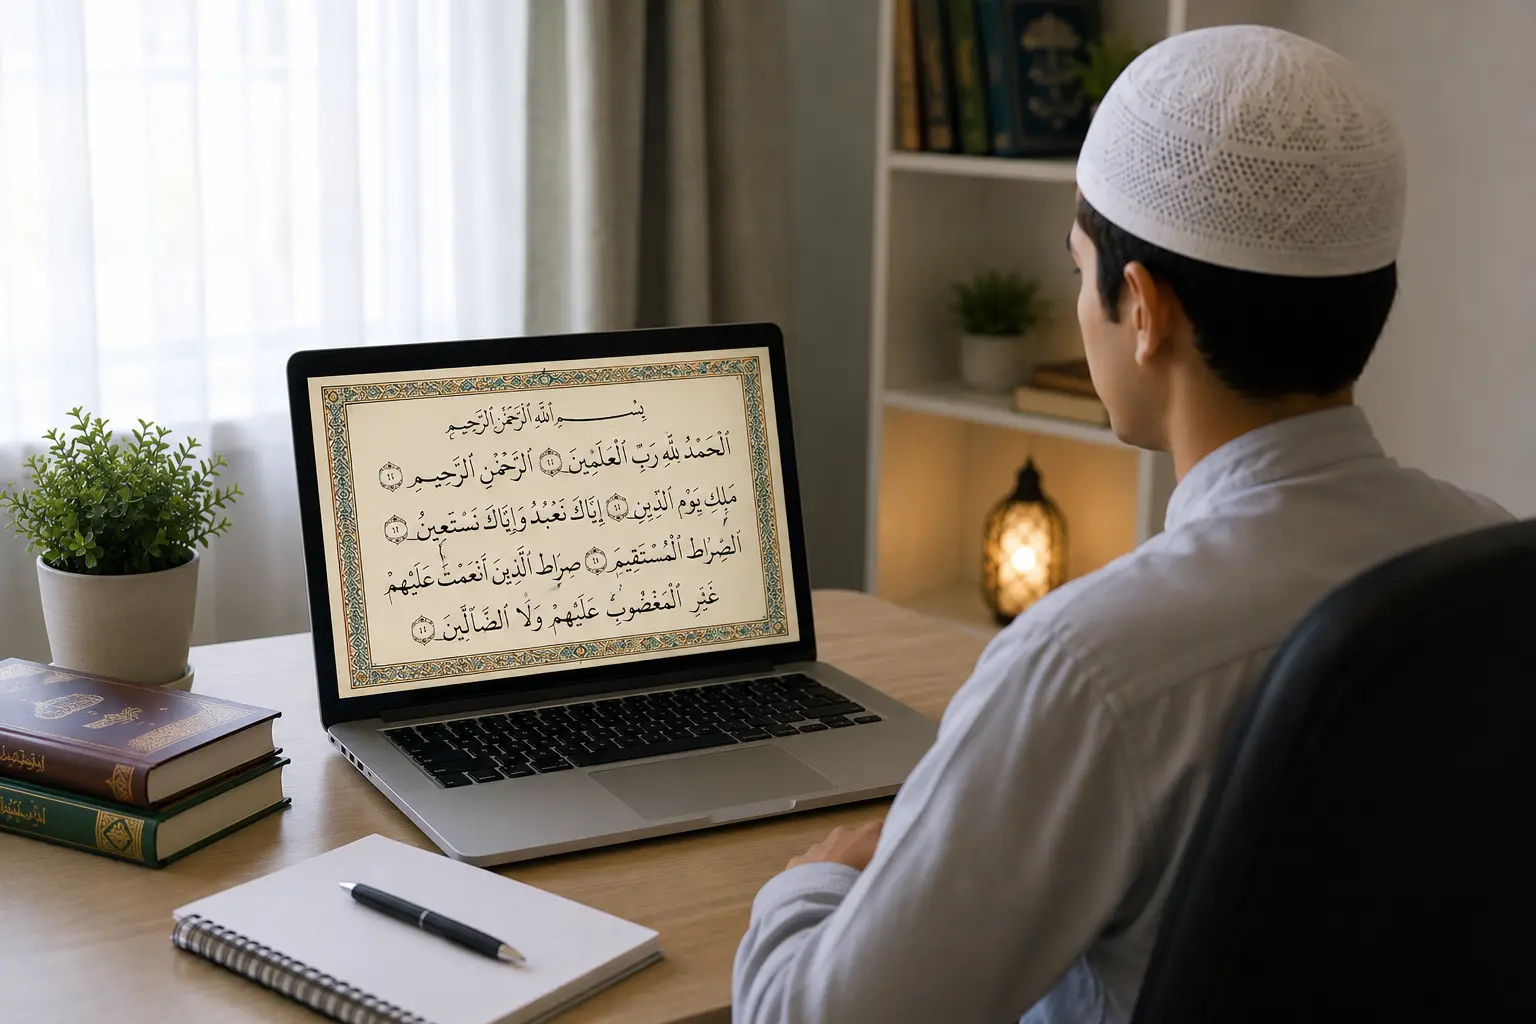 بِسْمِ اللَّهِ الرَّحْمَٰنِ الرَّحِيمِ
الْحَمْدُ لِلَّهِ رَبِّ الْعَلَمِيْنَ الرَّحْمَٰنِ الرَّحِيمِ
مَلِكِ يَوْمِ الدِّينِ إِيَّاكَ نَعْبُدُ وَإِيَّاكَ نَسْتَعِينُ
الصِّرَاطَ الْمُسْتَقِيمَ صِرَاطَ الَّذِينَ أَنْعَمْتَ عَلَيْهِمْ
غَيْرِ الْمَغْضُوبِ عَلَيْهِمْ وَلَا الضَّالِّينَ